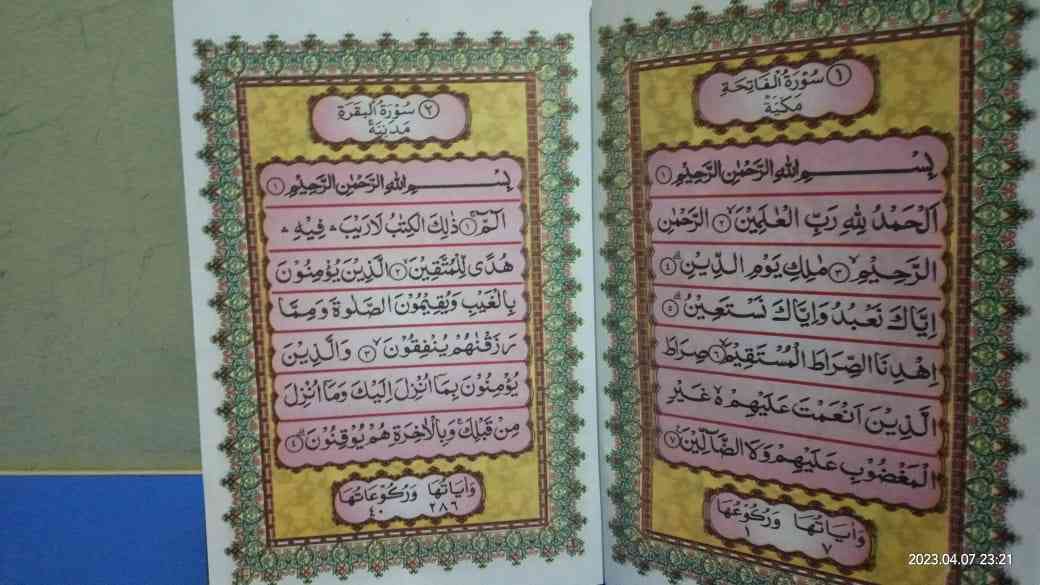 ١ سُوْرَةُ الْفَاتِحَةِ
مَكِّيَّةٌ
بِسْمِ اللهِ الرَّحْمٰنِ الرَّحِيْمِ ١
اَلْحَمْدُ لِلّٰهِ رَبِّ الْعٰلَمِيْنَ ٢ الرَّحْمٰنِ
الرَّحِيْمِ ٣ مٰلِكِ يَوْمِ الدِّيْنِ ٤
اِيَّاكَ نَعْبُدُ وَاِيَّاكَ نَسْتَعِيْنُ ٥
اِهْدِنَا الصِّرَاطَ الْمُسْتَقِيْمَ ٦ صِرَاطَ
الَّذِيْنَ اَنْعَمْتَ عَلَيْهِمْ ە غَيْرِ
الْمَغْضُوْبِ عَلَيْهِمْ وَلَا الضَّآلِّيْنَ ٧
وَاٰيَاتُهَا وَرُكُوْعُهَا
٧ ١
٢ سُوْرَةُ الْبَقَرَةِ
مَدَنِيَّةٌ
بِسْمِ اللهِ الرَّحْمٰنِ الرَّحِيْمِ ١
الٓمّٓ ١ ذٰلِكَ الْكِتٰبُ لَا رَيْبَ ۛ فِيْهِ ۛ
هُدًى لِّلْمُتَّقِيْنَ ٢ الَّذِيْنَ يُؤْمِنُوْنَ
بِالْغَيْبِ وَيُقِيْمُوْنَ الصَّلٰوةَ وَمِمَّا
رَزَقْنٰهُمْ يُنْفِقُوْنَ ٣ وَالَّذِيْنَ
يُؤْمِنُوْنَ بِمَآ اُنْزِلَ اِلَيْكَ وَمَآ اُنْزِلَ
مِنْ قَبْلِكَ وَبِالْاٰخِرَةِ هُمْ يُوْقِنُوْنَ ٤
وَاٰيَاتُهَا وَرُكُوْعَاتُهَا
٢٨٦ ٤٠
2023.04.07 23:21